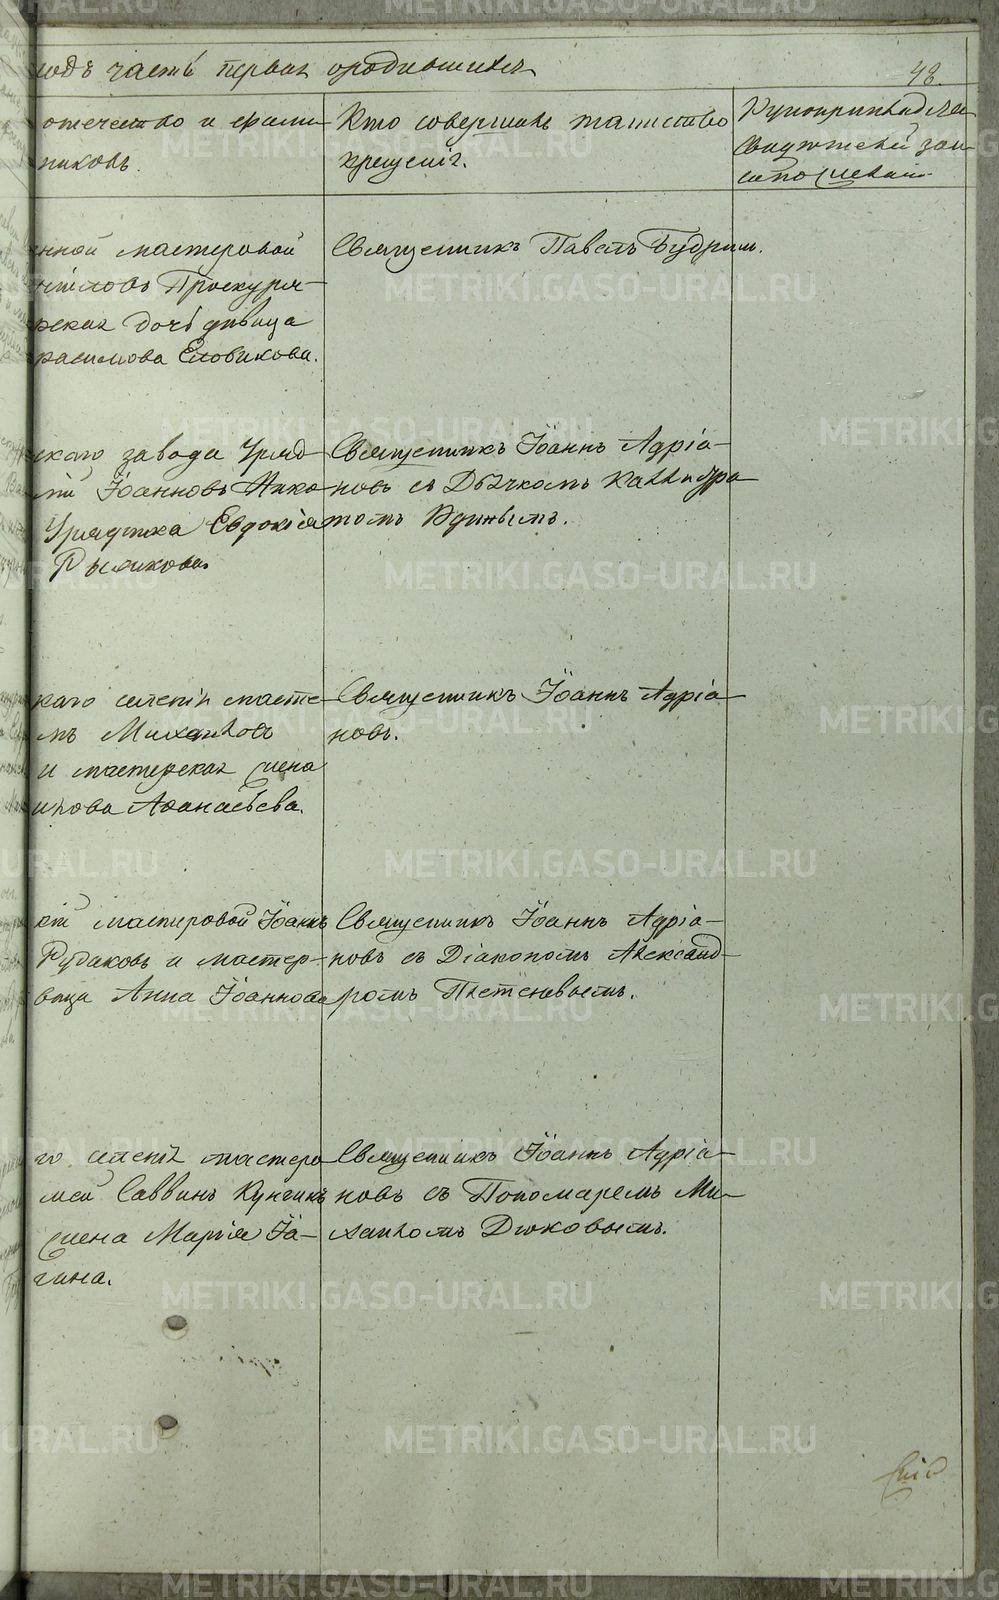 годъ часть первая о родившихся
48.
отечество и фами-
никовъ.
Кто совершалъ таинство
крещенія.
Рукоприкладство
свидѣтелей
по желанію
нной мастеровой
Проскуря-
рская дочь дѣвица
расимова Еловикова.
Священникъ Павелъ Будрин.
скаго завода Уряд-
Іоанновъ
Урядника Евдокія
Рышкова
Священникъ Іоаннъ Адріа-
новъ съ Дьячкомъ
Юдинымъ.
каго селенія масте-
лъ Михайловъ
и мастерская жена
Афанасьева.
Священникъ Іоаннъ Адріа-
новъ.
кій мастеровой Іоаннъ
Рудаковъ и мастер-
вица Анна Іоаннова
Священникъ Іоаннъ Адріа-
новъ съ Діакономъ Александ-
ромъ Плетеневымъ.
го мастеро
лей Саввинъ Кунгинъ
жена Марія Іа-
гина.
Священникъ Іоаннъ Адріа-
новъ съ Пономаремъ Ми-
хаиломъ Дюковымъ.
METRIKI.GASO-URAL.RU